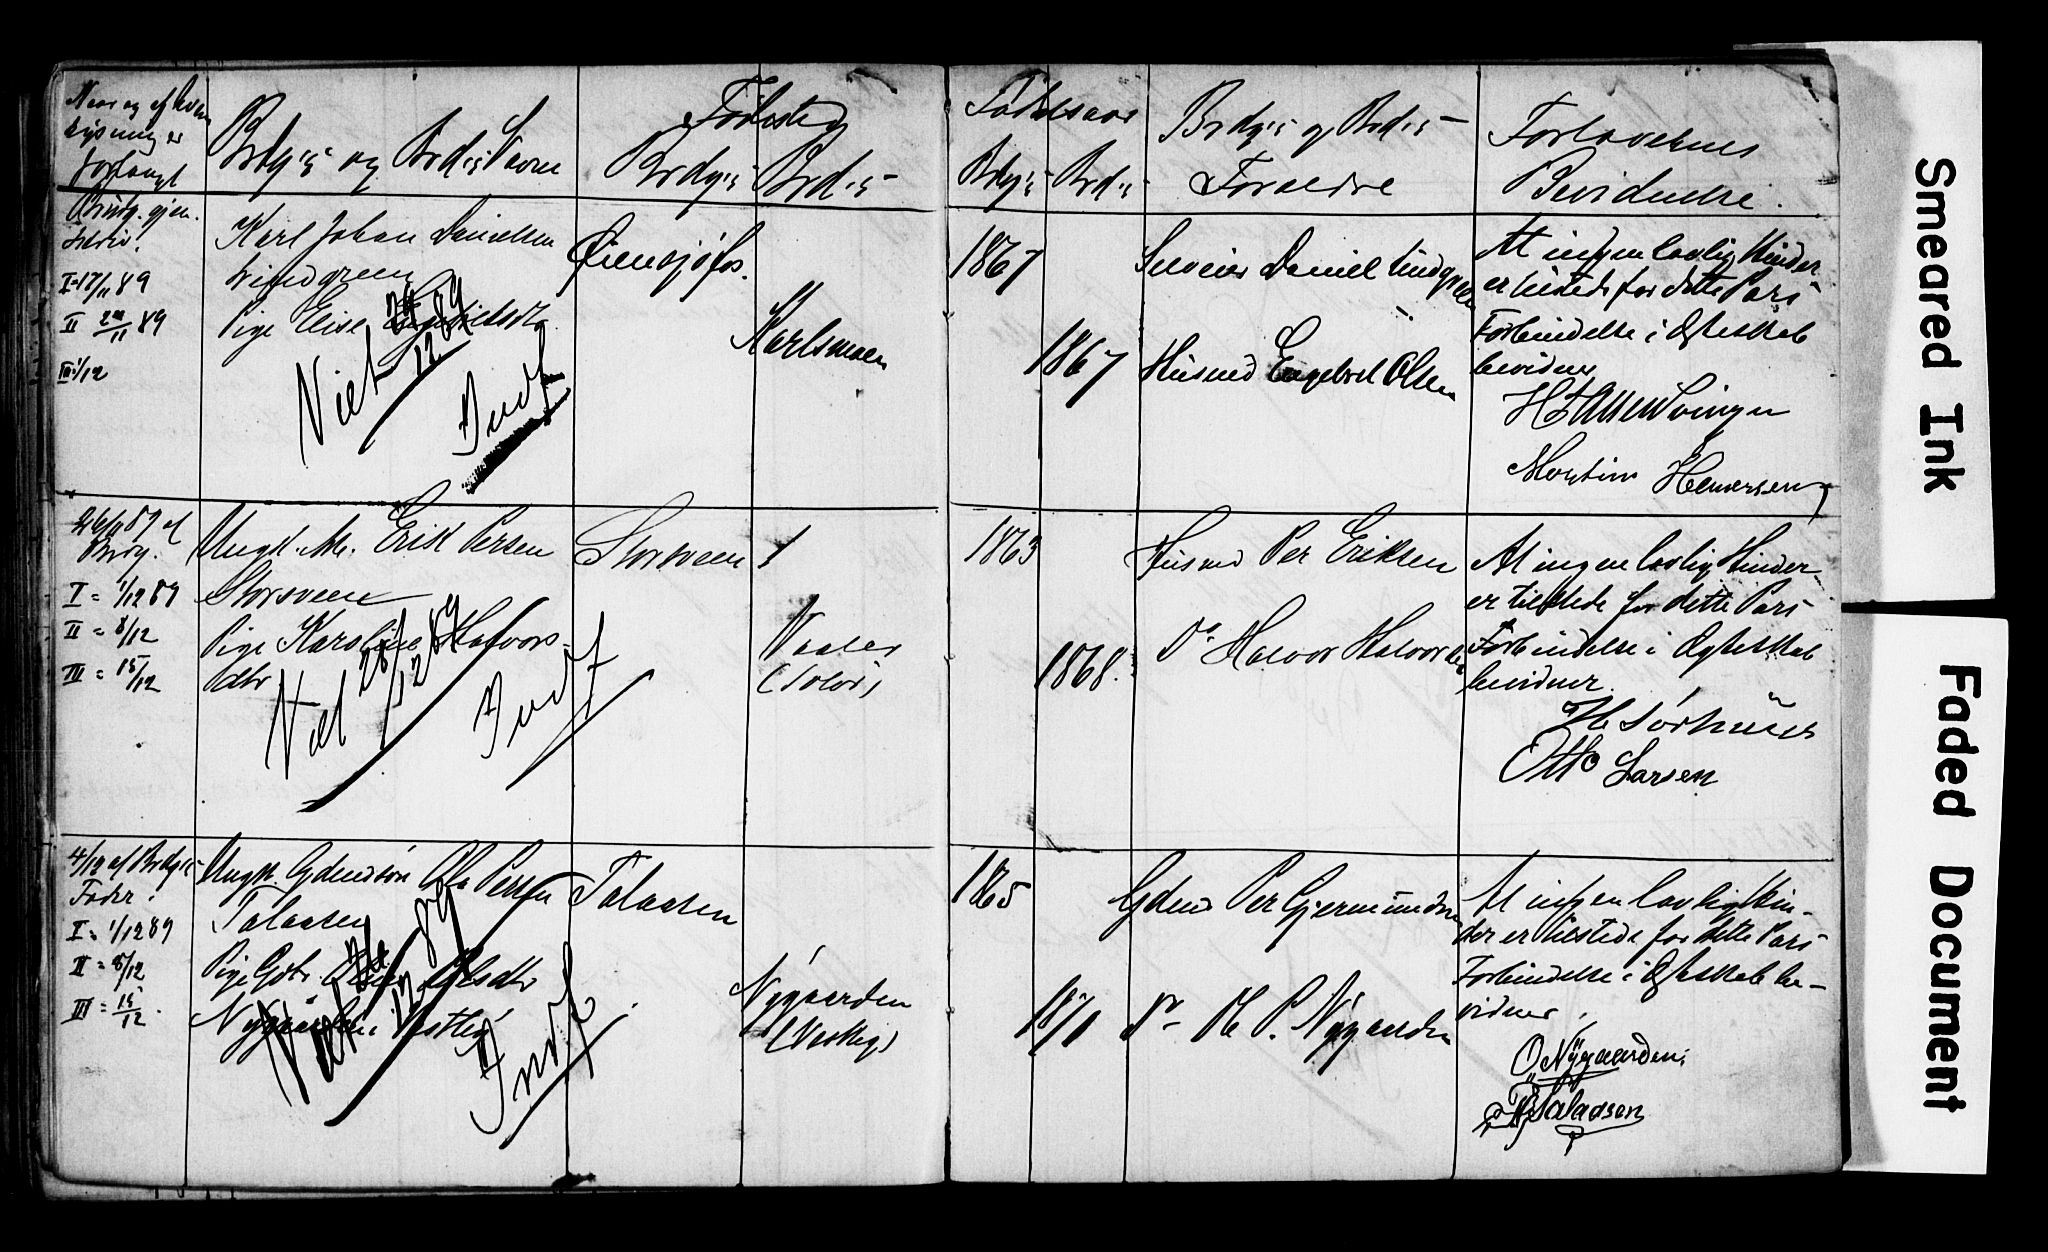 Naar og af hvem
Lysning er
forlangt
Brdg's og Brd's Navne
Fødested
Brdg's
Brd's
Fødselsaar
Brdg's
Brd's
Brdg's og Brd's
Forældre
Forlovernes
Bevidnelse.
Brudg.
I 17/11 89
II 24/11 89
III 1/12
Karl Johan Danielsen
Lindgreen
Pige Elise Engebretsdtr
Viet 29/12 89
Indf
Øiensjøfos.
Karlsmoen
1867
1867
Daniel Lindgreen
Husmd Engebret Olsen
At ingen lovlig Hinder
er tilstede for dette Pars
Forbindelse i Ægteskab
bevidner
Morten Henersen
26/11 89 af
Brdg.
I = 1/12 89
II = 8/12
III = 15/12
Ungk. Erik Persen
Storsveen
Pige Karoline Halvors-
dtr
Viet 28/12 89
Indf
Storsveen
Vaaler
(Solør)
1863
1868.
Husmd Per Eriksen
Do Halvor Halvorsen
At ingen lovlig Hinder
er tilstede for dette Pars
Forbindelse i Ægteskab
bevidner
Otto Larsen
4/12 af Brdg's
Fader.
I = 1/12 89
II = 8/12
III = 15/12.
Ungk. Gdmdsøn Ola Persen
Talaasen
Pige Gdtr. Olsdtr
Nygaarden i Vestby
Viet 12 89
Indf
Talaasen
Nygaarden
(Vestby)
1865
1871
Gdmd Per Gjermundsen
Do Ole P. Nygaarden
At ingen lovlig Hin-
der er tilstede for dette Pars
Forbindelse i Ægteskab be-
vidner
O Nygaarden
P Talaasen
Smeared Ink
Faded Document